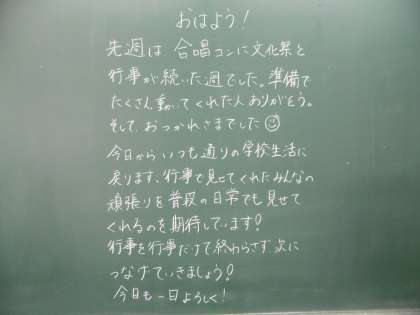 おはよう!
先週は 合唱コンに文化祭と
行事が続いた週でした。準備で
たくさん動いてくれた人ありがとう。
そして、おつかれさまでした☺
今日からいつも通りの学校生活に
戻ります。行事で見せてくれたみんなの
頑張りを普段の日常でも見せて
くれるのを期待しています!
行事を行事だけで終わらさず次に
つなげていきましょう!
今日も一日よろしく!